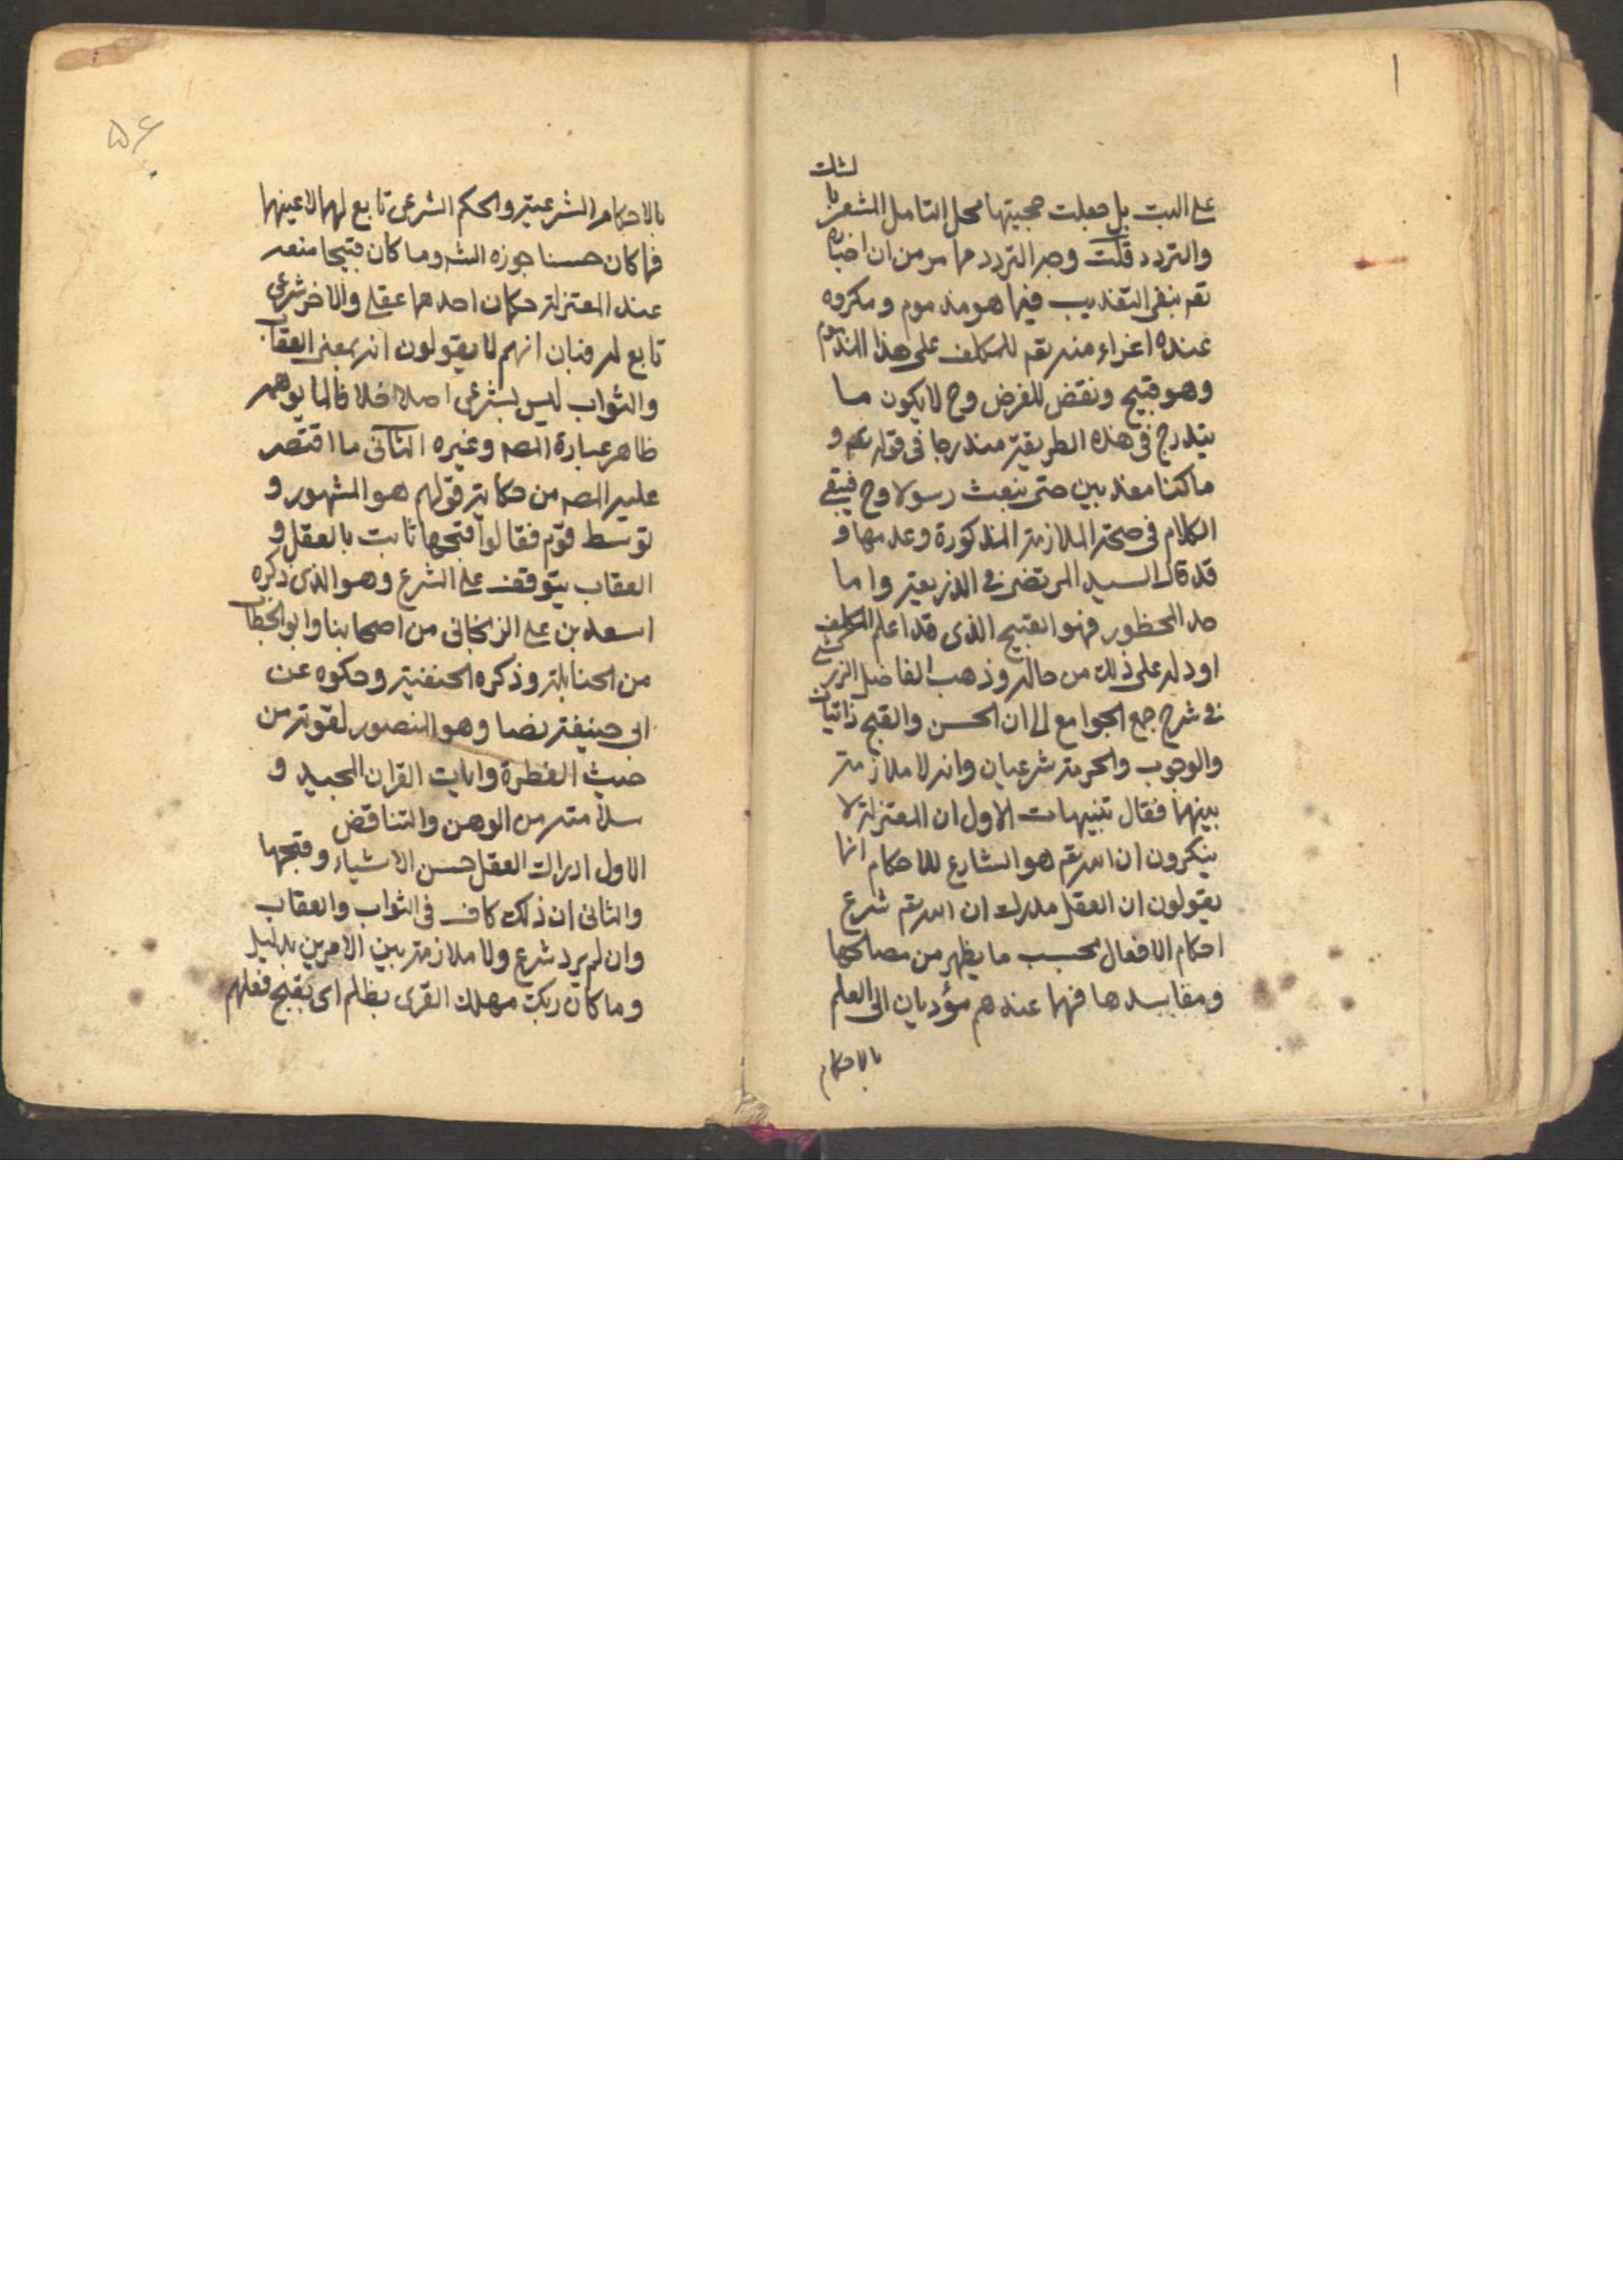 على البت بل جعلت حجيتها محل التامل المشعر با
لشك
والتردد قلت وجه التردد ما مر من ان اخباره
تعم بنفى التعذيب فيما هو مذموم و مكروه
عنده اغراء منه تعم للمكلف على هذا المذموم
وهو قبيح ونقض للغرض وح لا يكون ما
يندرج فى هذه الطريقة مندرجا فى قوله تعم و
ما كنا معذبين حتى نبعث رسولا وح فيبقى
الكلام فى صحة الملازمة المذكورة وعدمها و
قد قال السيد المرتضى فى الذريعة واما
حد المحظور فهو القبيح الذى قد اعلم المكلف
او دله على ذلك من حاله وذهب الفاضل الزركشى
فى شرح جمع الجوامع الى ان الحسن والقبح ذاتيان
والوجوب والحرمة شرعيان وانه لا ملازمة
بينهما فقال تنبيهات الاول ان المعتزلة لا
ينكرون ان الله تعم هو الشارع للاحكام انما
يقولون ان العقل مدرك ان الله تعم شرع
احكام الافعال بحسب ما يظهر من مصالحها
ومفاسدها فهما عندهم مؤديان الى العلم
بالاحكام
۵۶
بالاحكام الشرعية والحكم الشرعى تابع لهما لا عينهما
فما كان حسنا جوزه الشه وما كان قبيحا منعه
عند المعتزلة حكمان احدهما عقلى والاخر شرعى
تابع له فبان انهم لا يقولون انه بمعنى العقاب
والثواب ليس بشرعى اصلا خلافا لما يوهمه
ظاهر عبارة المصه وغيره الثانى ما اقتصر
عليه المصه من حكاية قولهم هو المشهور و
توسط قوم فقالوا قبحها ثابت بالعقل و
العقاب يتوقف على الشرع وهو الذى ذكره
اسعد بن على الزنجانى من اصحابنا وابو الخطاب
من الحنابلة وذكره الحنفية وحكوه عن
ابى حنيفة نصا وهو المنصور لقوته من
حيث الفطرة وايات القران المجيد و
سلامته من الوهن والتناقض
الاول ادراك العقل حسن الاشياء وقبحها
والثانى ان ذلك كاف فى الثواب والعقاب
وان لم يرد شرع ولا ملازمة بين الامرين بدليل
وما كان ربك مهلك القرى بظلم اى بقبح فعلهم